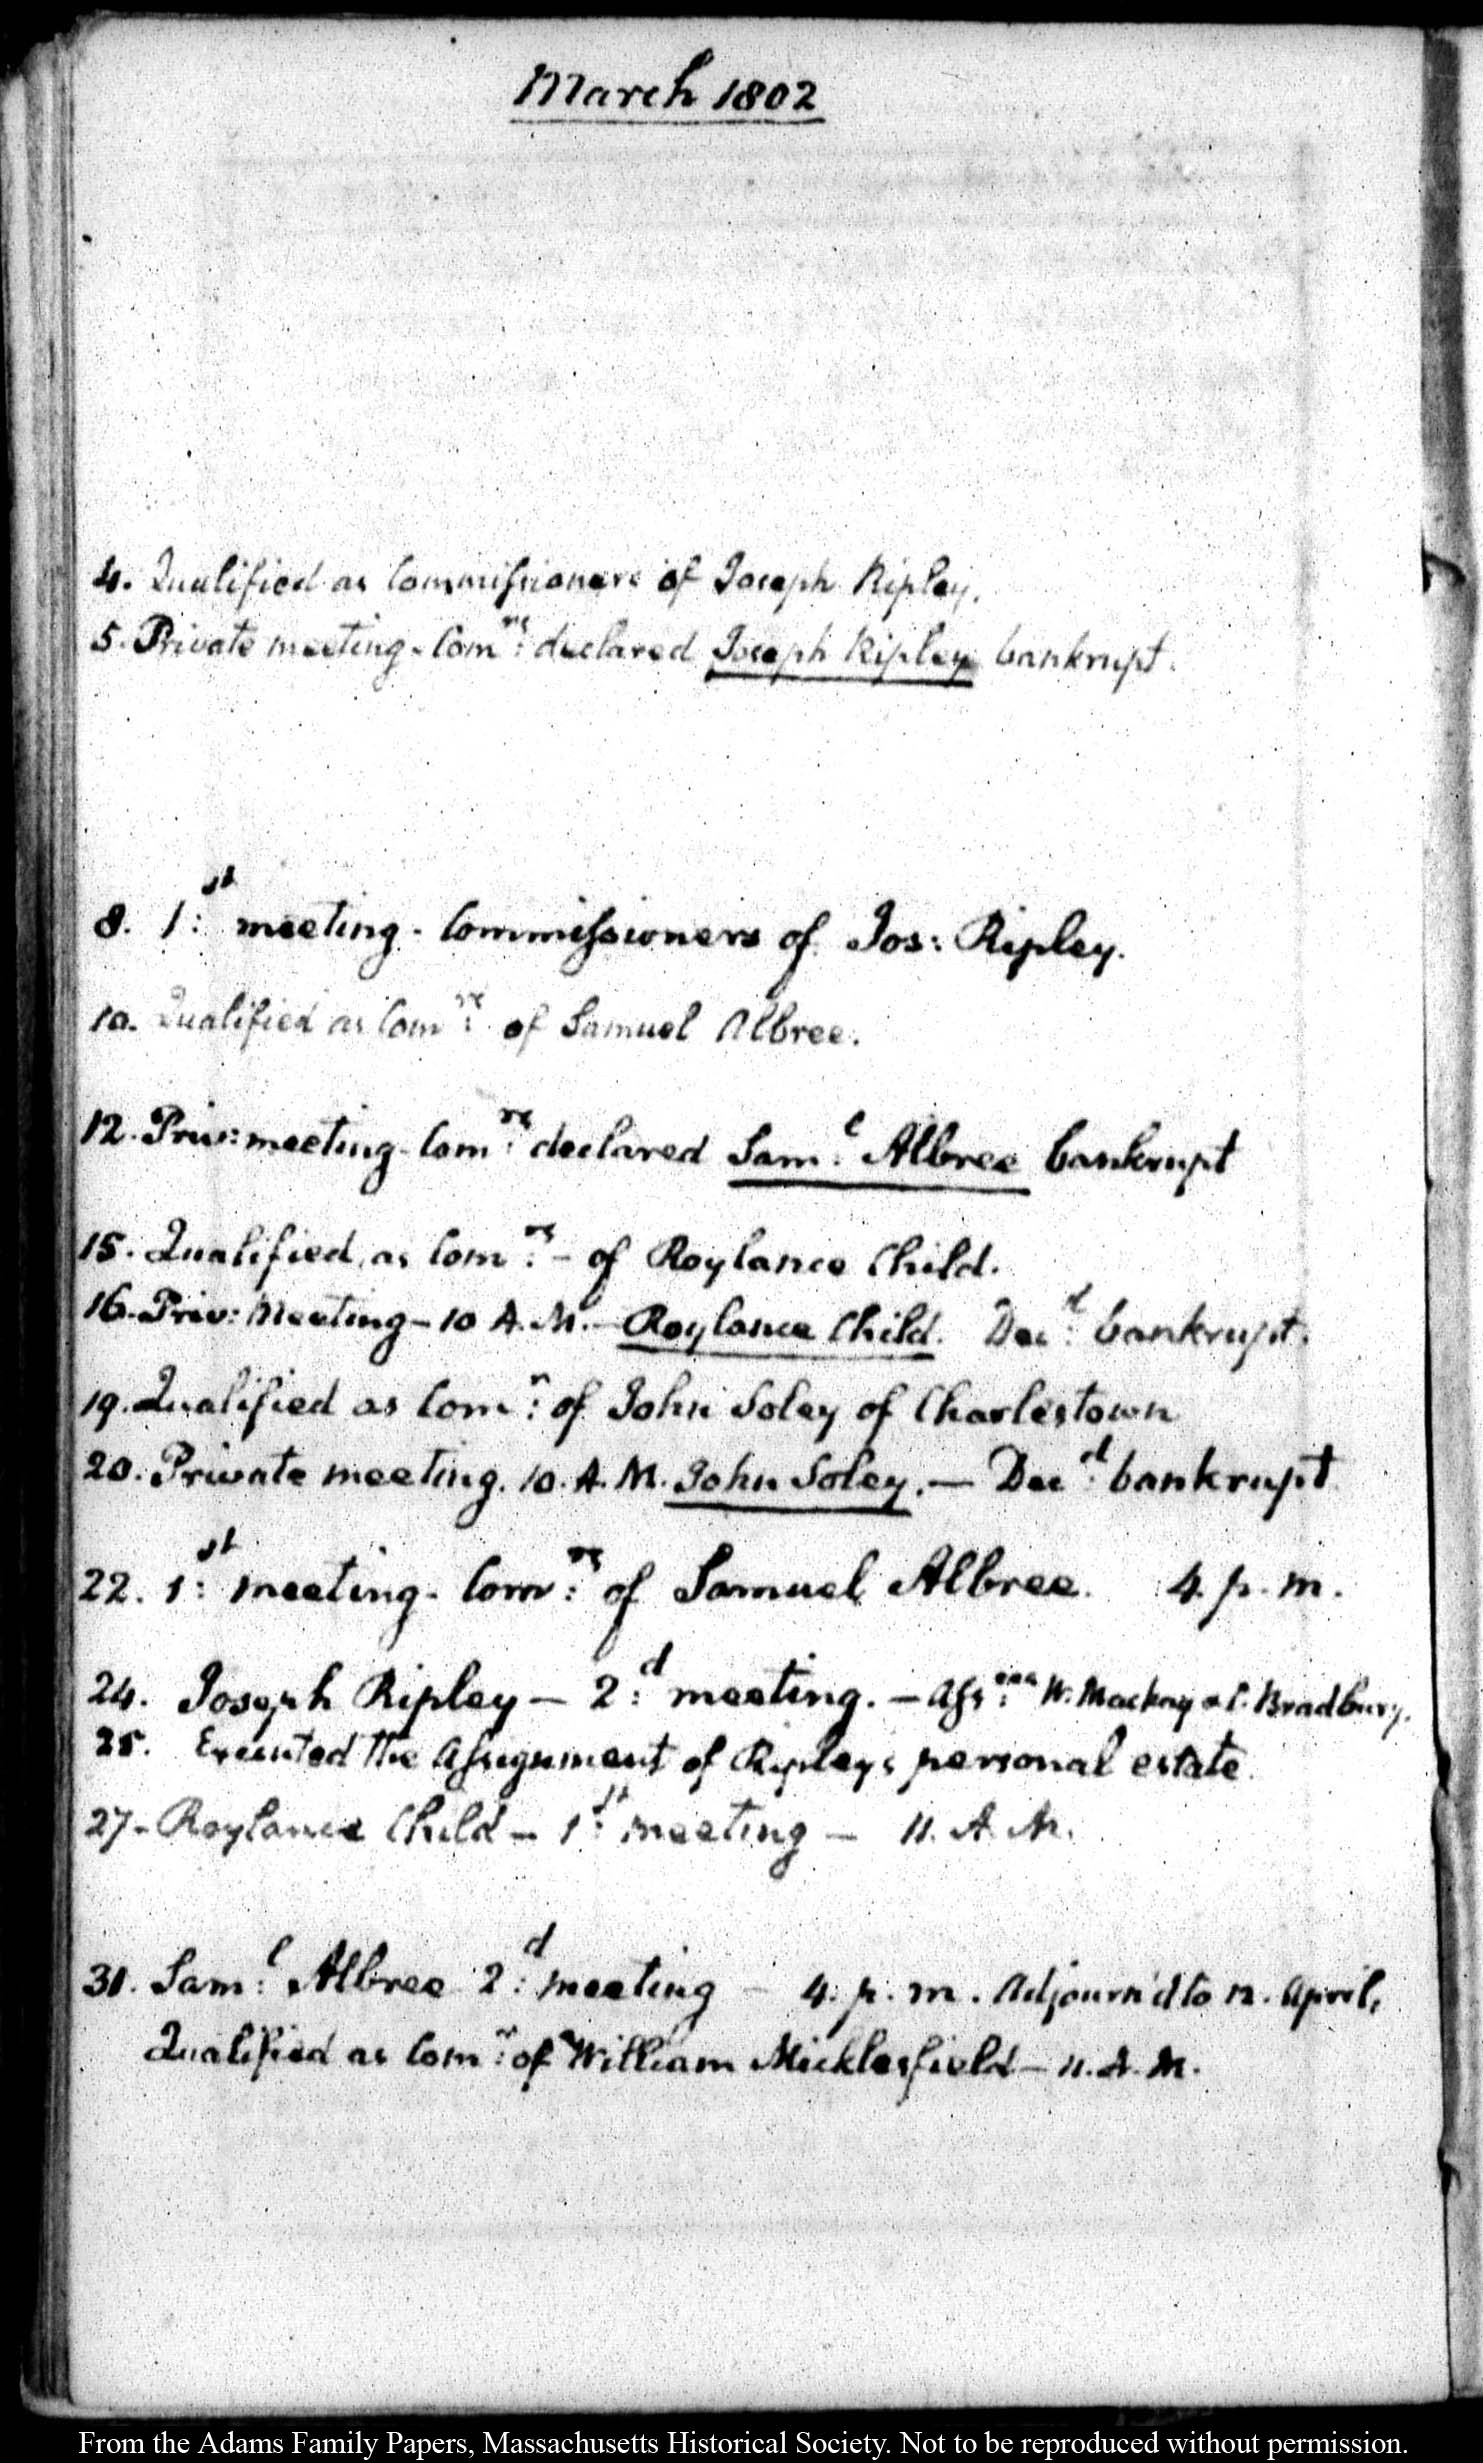 March 1802
4. Qualified as Commissioners of Joseph Ripley.
5. Private meeting - Com:rs declared Joseph Ripley bankrupt.
8. 1:st meeting - Commissioners of Jos: Ripley.
10. Qualified as Com:rs of Samuel Albree.
12. Priv: meeting - Com:rs declared Sam:l Albree bankrupt
15. Qualified as Com:rs - of Roylance Child.
16. Priv: Meeting - 10 A.M. - Roylance Child. Dec:d bankrupt.
19. Qualified as Com:r of John Soley of Charlestown
20. Private meeting. 10. A.M. John Soley. — Dec:d bankrupt
22. 1:st meeting - Com:rs of Samuel Albree. 4. p.m.
24. Joseph Ripley — 2:d meeting. — Ass: W. Mackay & C. Bradbury.
25. Executed the Assignment of Ripleys personal estate.
27 - Roylance Child — 1:st meeting — 11. A.M.
31. Sam:l Albree 2:d meeting — 4. p.m. Adjourn'd to 12. April,
Qualified as Com:r of William Micklesfield — 11. A.M.
From the Adams Family Papers, Massachusetts Historical Society. Not to be reproduced without permission.